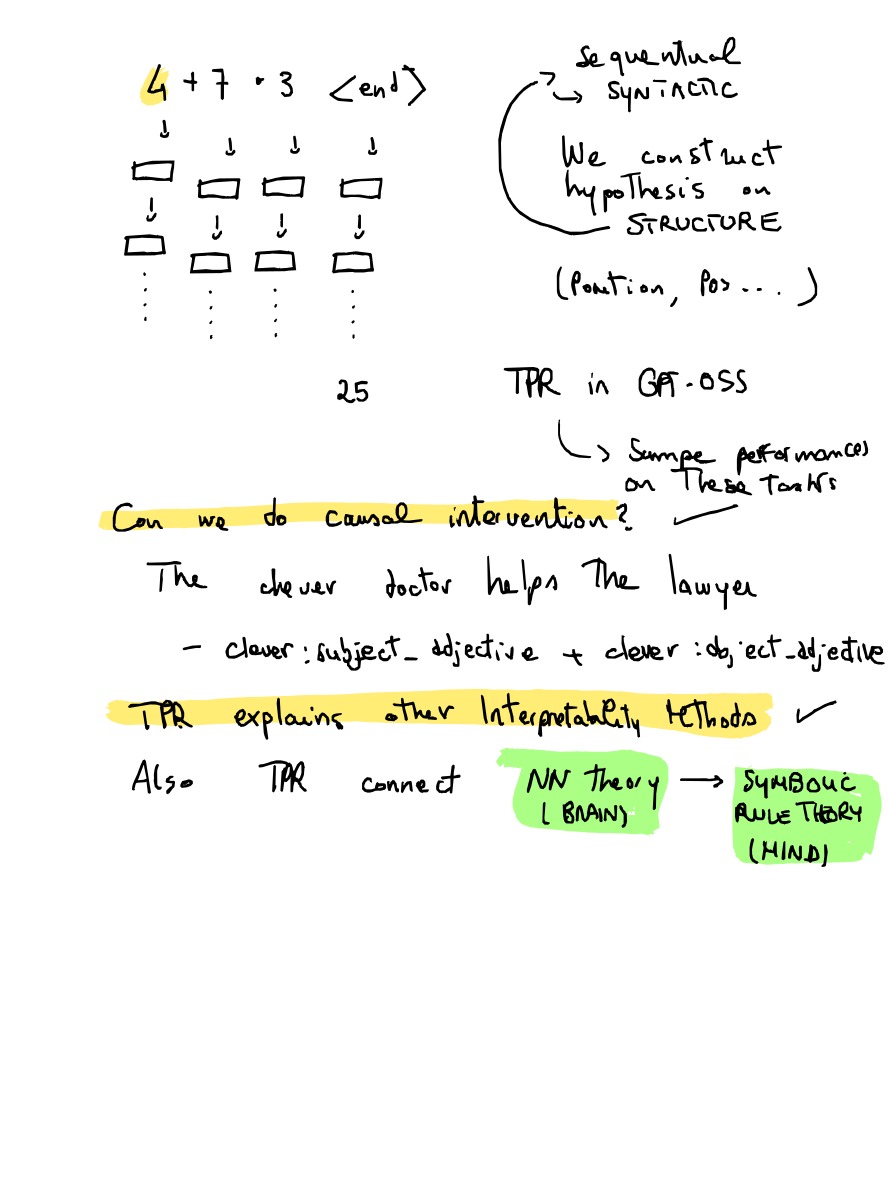 4 + 7 · 3 <end>
25
sequentual
SYNTACTIC
We construct
hypothesis on
STRUCTURE
(Position, Pos ... )
TPR in GPT-OSS
performances
on These Tasks
Can we do causal intervention?
The clever doctor helps The lawyer
- clever:subject_adjective + clever:object_adjective
TPR explains other Interpretability Methods
Also TPR connect NN Theory → SYMBOLIC
(BRAIN) RULE THEORY
(MIND)